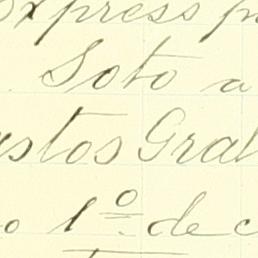 express p
Soto a
stos Gral
o 1º de c